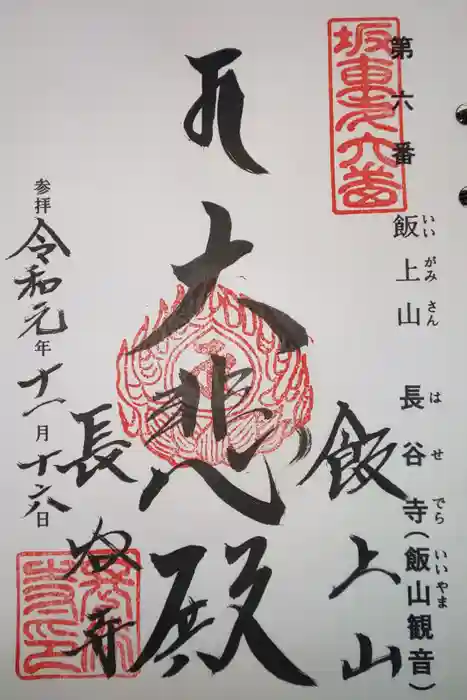 第六番 飯上山 長谷寺(飯山観音)
いいがみさん はせでら いいやま
坂東第六番
飯上山
大悲殿
長谷寺
参拝 令和元年十一月十六日